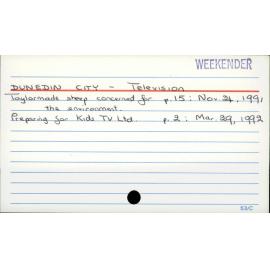 WEEKENDER
DUNEDIN CITY - Television
Taylormade sheep concerned for p.15: Nov. 24, 1991
the environment.
Preparing for Kids TV Ltd. p.2: Mar. 29, 1992
53/C